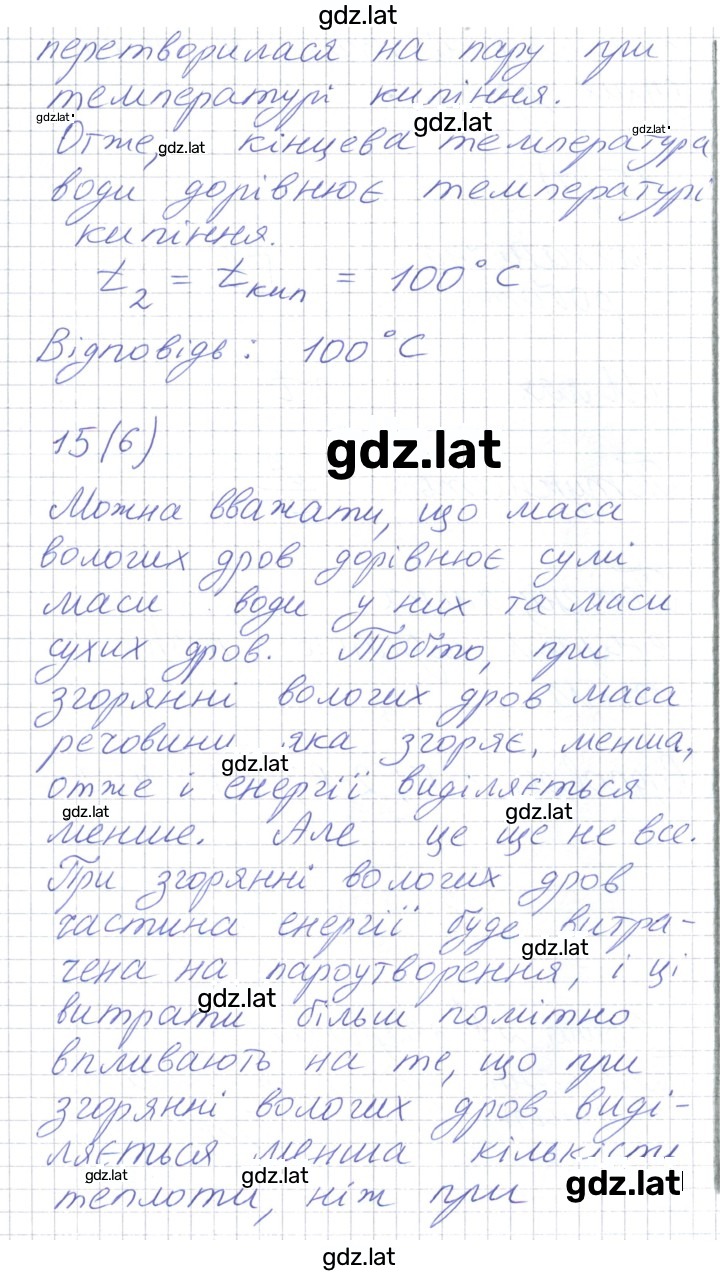 gdz.lat
перетворилася на пару при
температурі кипіння.
gdz.lat
gdz.lat
gdz.lat
Отже, кінцева температура
gdz.lat
води дорівнює температурі
кипіння.
t₂ = tкип = 100°C
Відповідь: 100°C
15(6)
gdz.lat
Можна вважати, що маса
вологих дров дорівнює сумі
маси води у них та маси
сухих дров. Тобто, при
згорянні вологих дров маса
речовини яка згоряє, менша,
gdz.lat
отже і енергії виділяється
gdz.lat
gdz.lat
менше. Але це ще не все.
При згорянні вологих дров
частина енергії буде витра-
gdz.lat
чена на пароутворення, і ці
gdz.lat
витрати більш помітно
впливають на те, що при
згорянні вологих дров виді-
ляється менша кількість
gdz.lat
gdz.lat
gdz.lat
теплоти, ніж при
gdz.lat